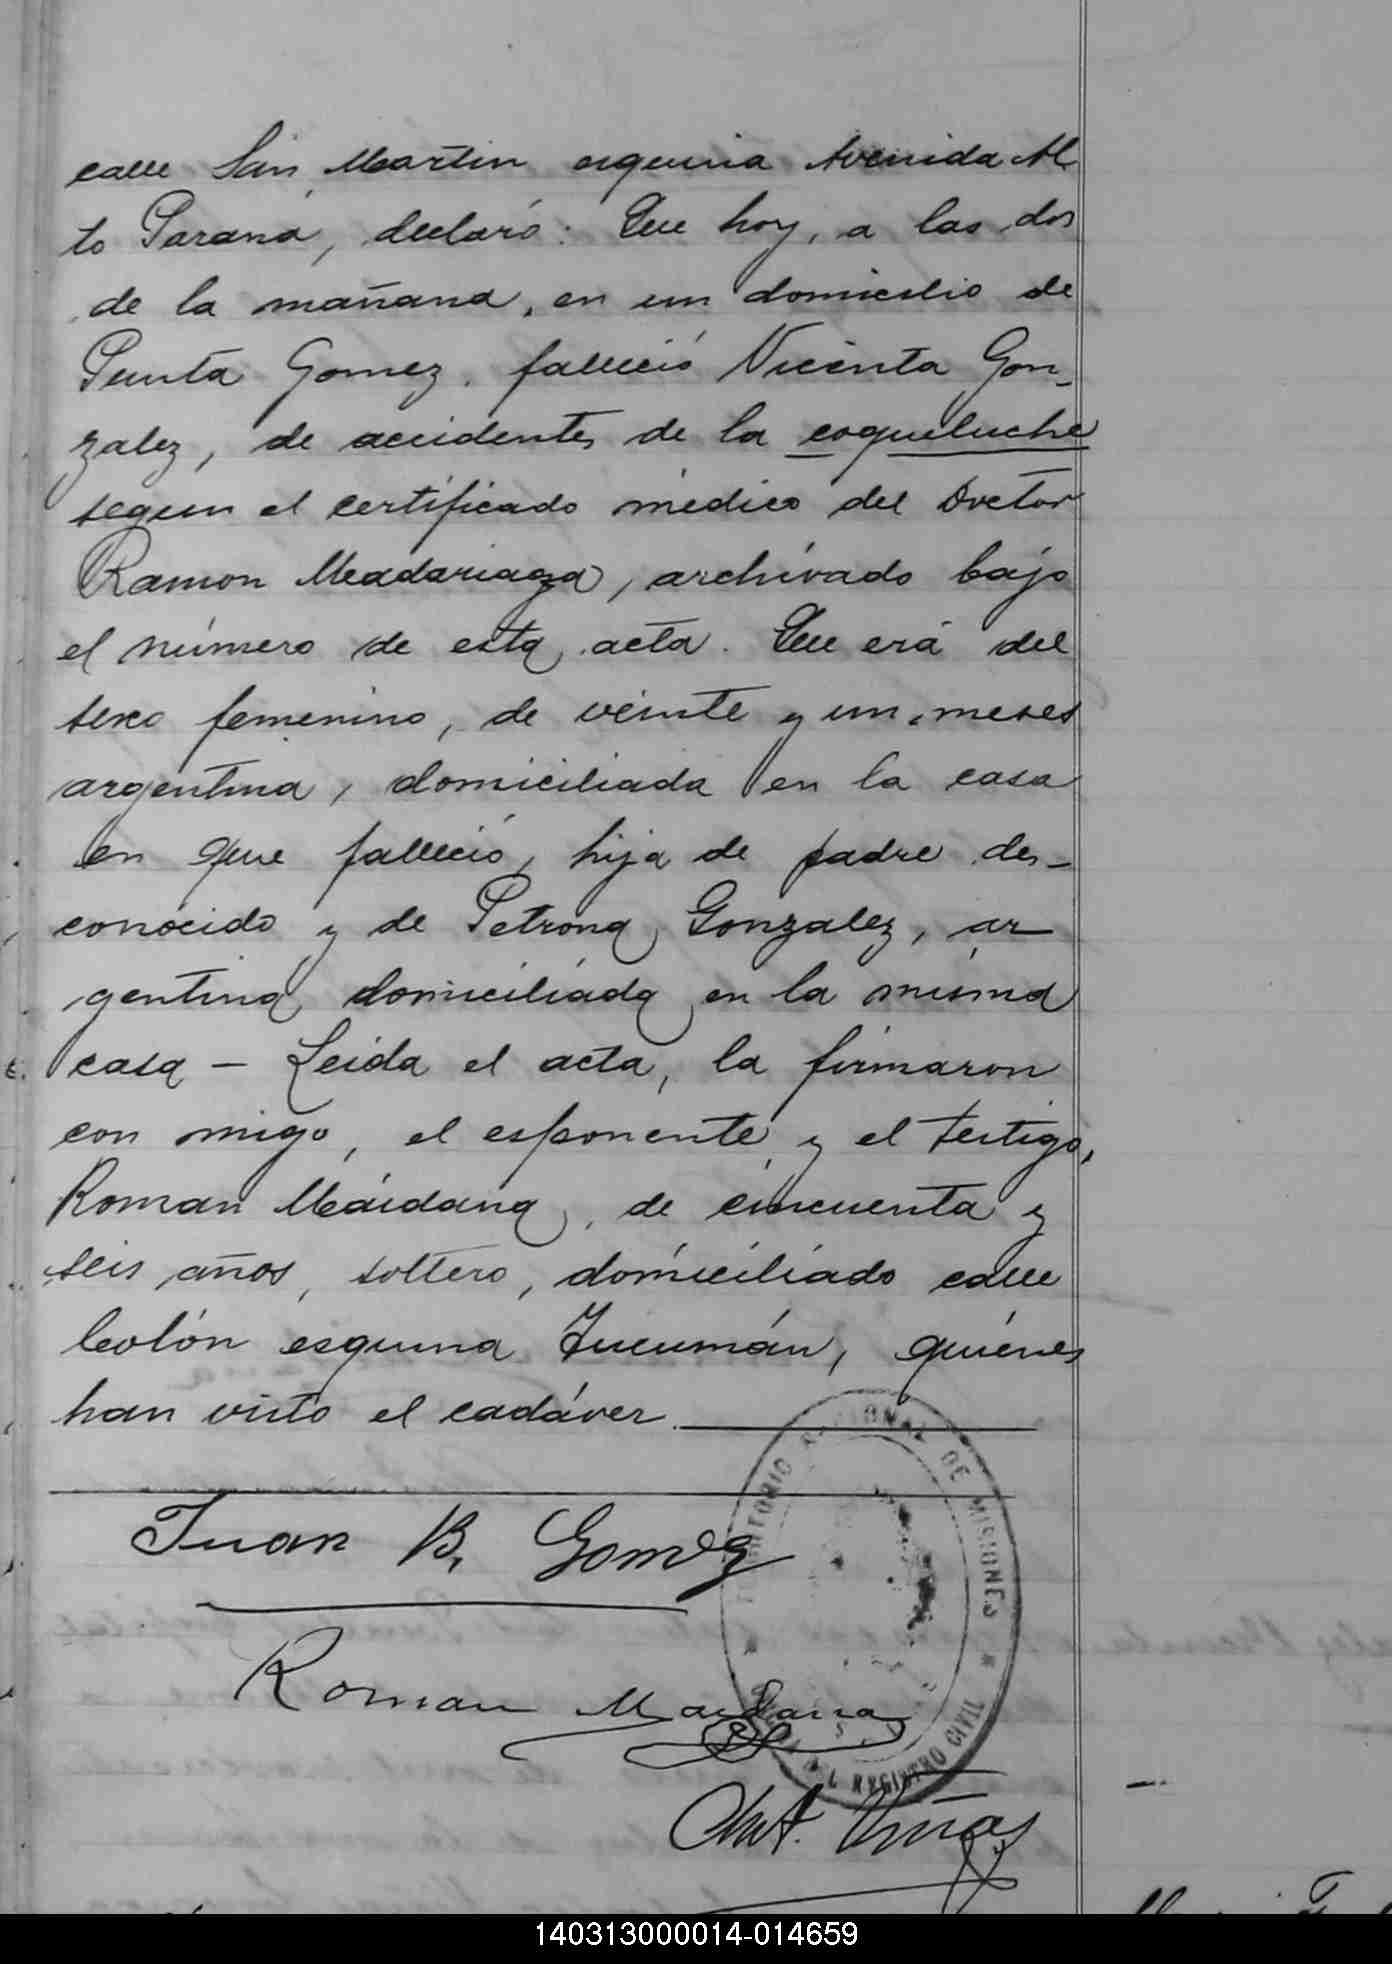 calle San Martin esquina Avenida Al
to Paraná, declaró: Que hoy, a las dos
de la mañana, en un domicilio de
Punta Gomez, falleció Vicenta Gon-
zalez, de accidentes de la coqueluche
segun el certificado médico del Doctor
Ramon Madariaga, archivado bajo
el número de esta acta. Que era del
sexo femenino, de veinte y un meses
argentina, domiciliada en la casa
en que falleció, hija de padre des-
conocido y de Petrona Gonzalez, ar
gentina domiciliada en la misma
casa - Leida el acta, la firmaron
con migo, el esponente y el testigo,
Roman Maidana, de cincuenta y
seis años, soltero, domiciliado calle
Colón esquina Tucumán, quiénes
han visto el cadáver
Juan B. Gomez
Roman Maidana
Viñas
TERRITORIO NACIONAL DE MISIONES
DEL REGISTRO CIVIL
140313000014-014659